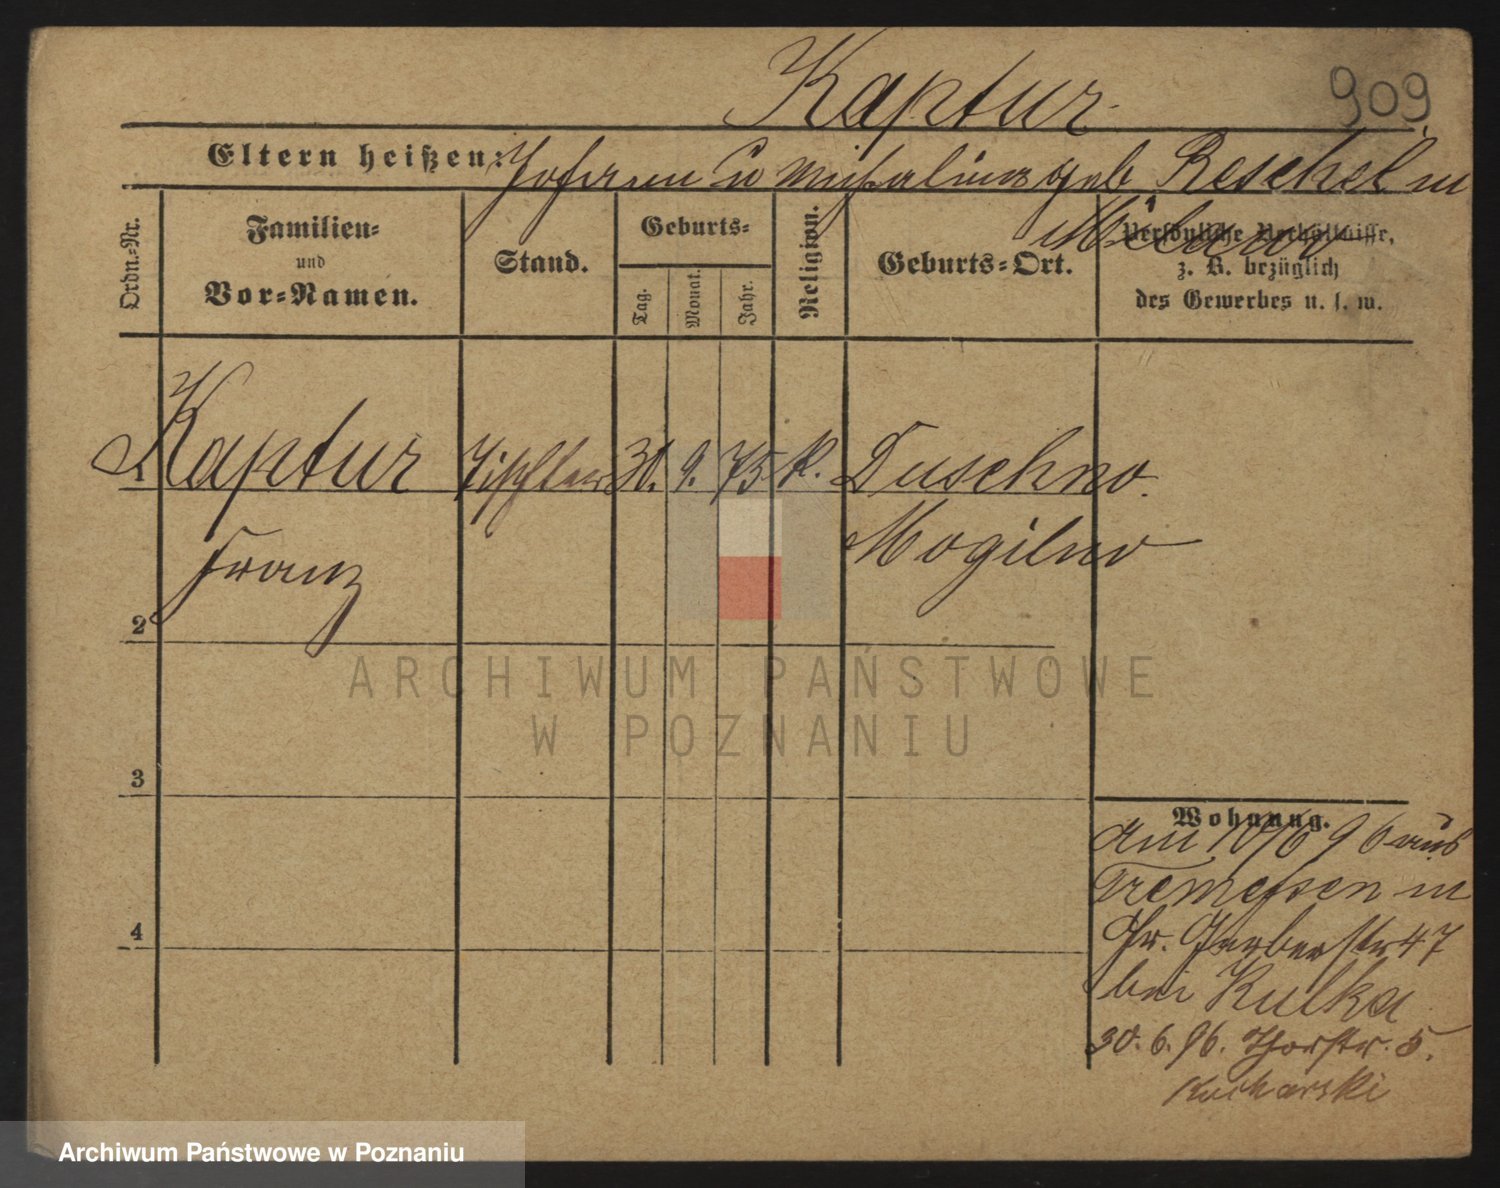 Kaptur
909
Eltern heißen: Johann u Michalina geb Reschel in
Ordn.-Nr.
Familien-
und
Vor-Namen.
Stand.
Geburts-
Tag.
Monat.
Jahr.
Religion.
Geburts-Ort.
Persönliche Verhältnisse,
z. B. bezüglich
des Gewerbes u. s. w.
1 Kaptur Tischler 30. 9. 75 k. Duschno
Franz Mogilno
2
3
4
Wohnung.
am 10/6 96 aus
Tremessen in
Gr. Gerberstr 47
bei Kulka
30. 6. 96. Thorstr. 5.
Kucharski
ARCHIWUM PAŃSTWOWE
W POZNANIU
Archiwum Państwowe w Poznaniu